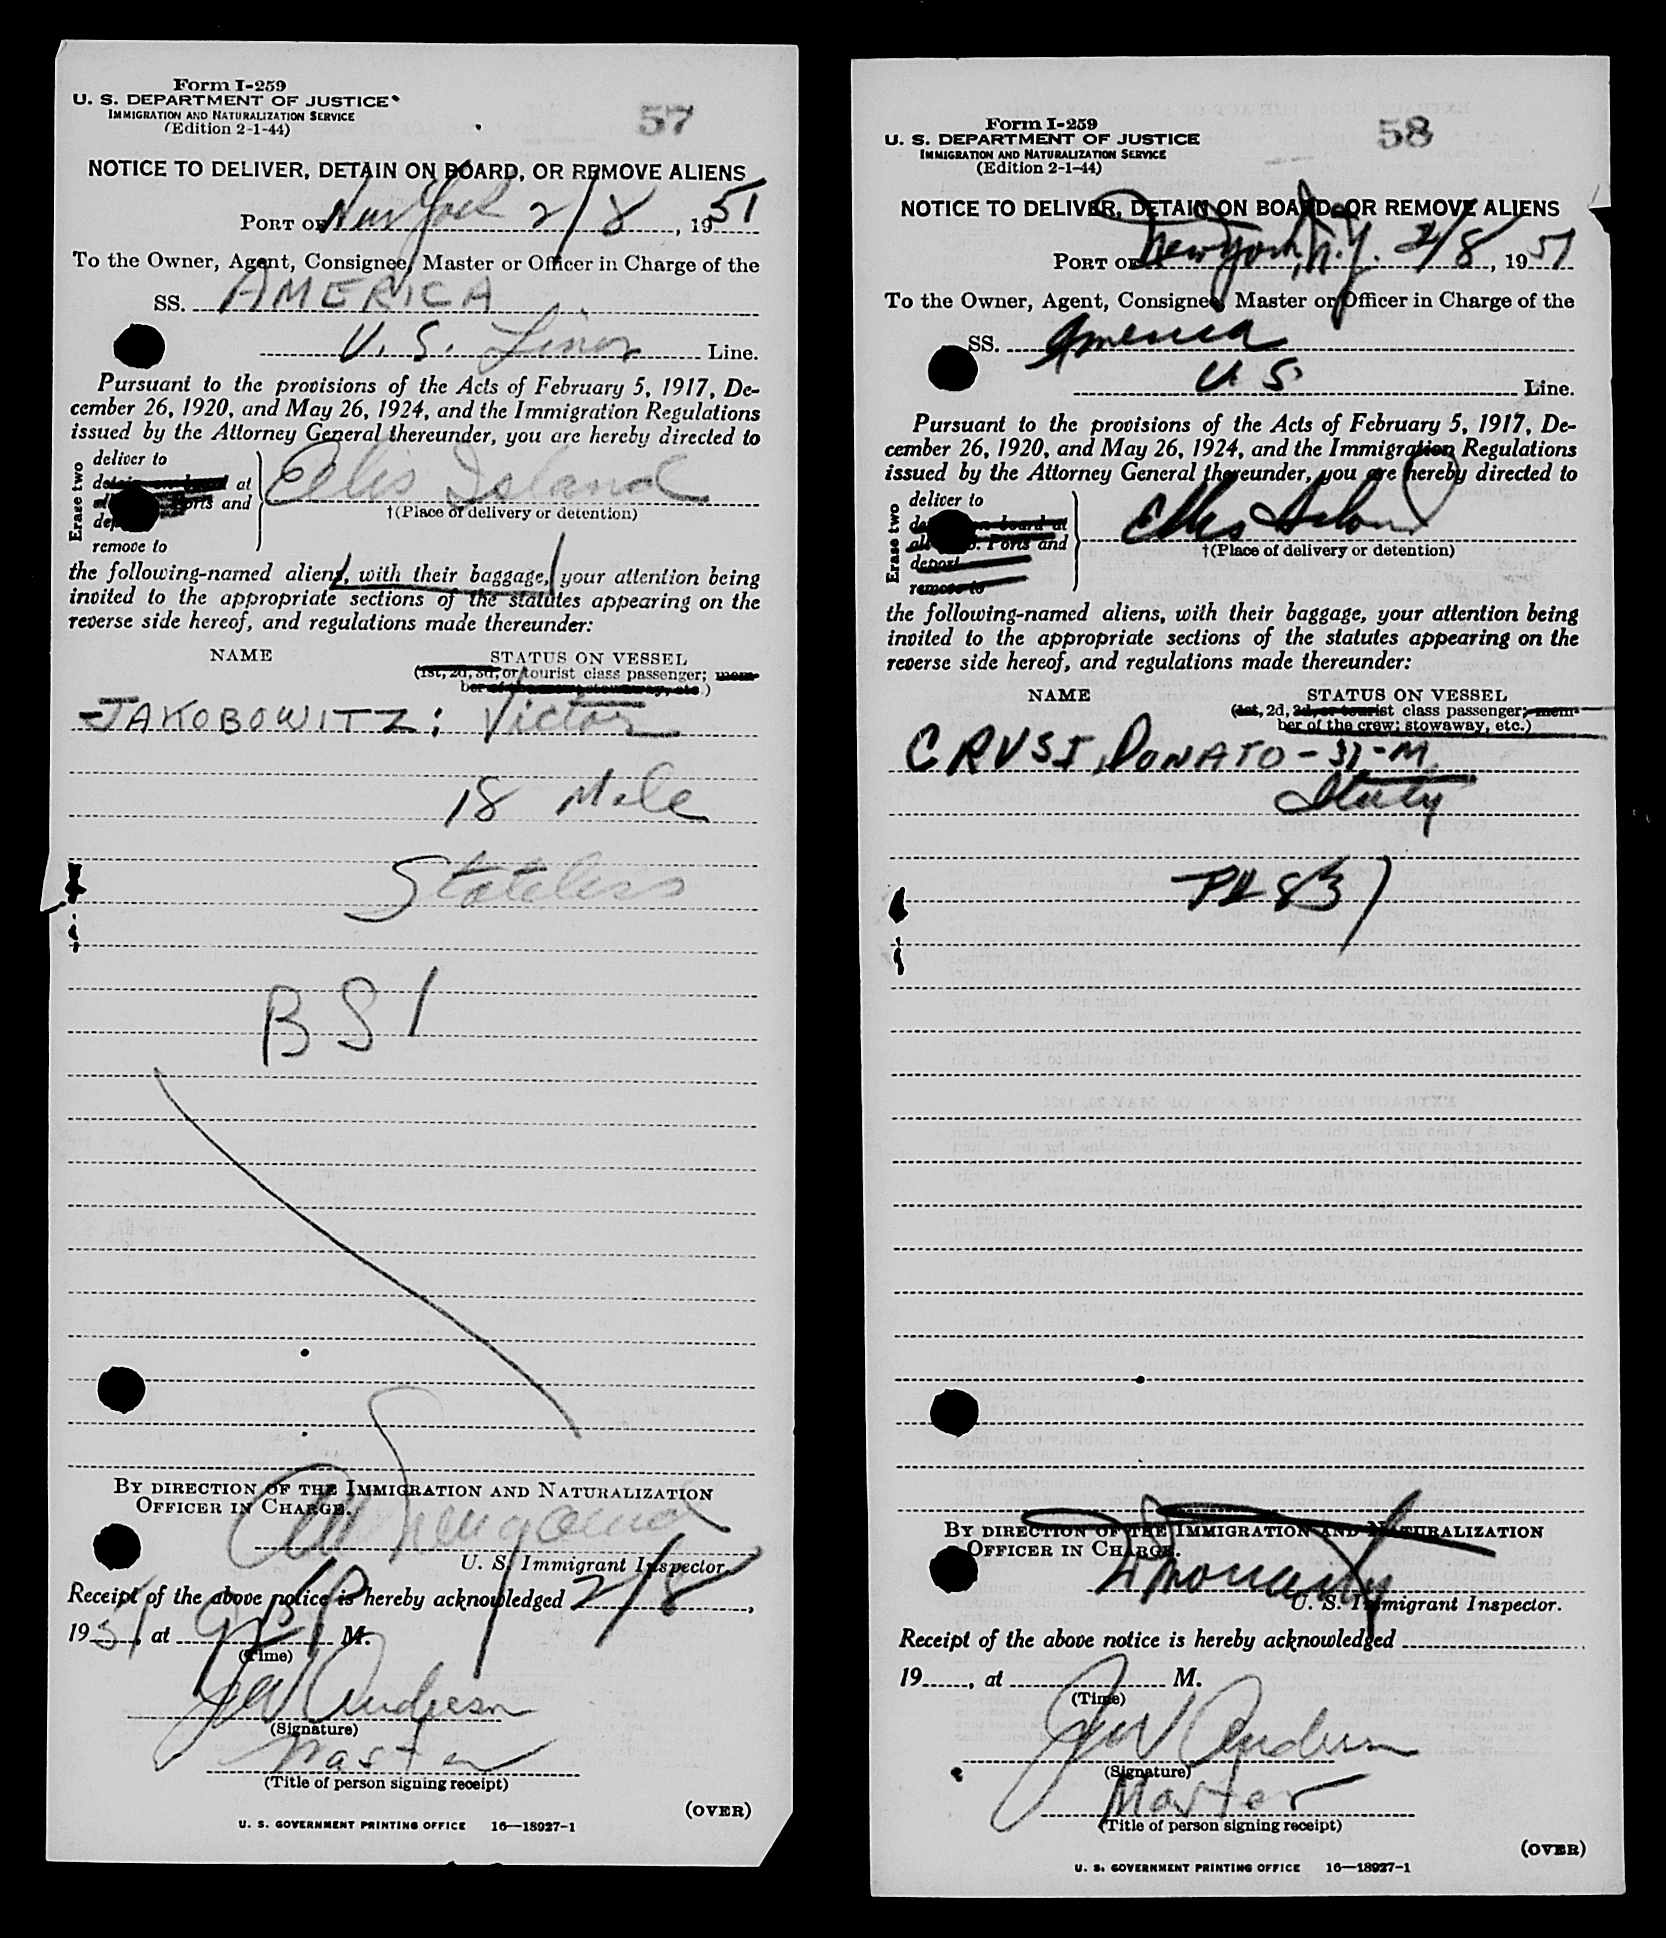 Form I-259
U. S. DEPARTMENT OF JUSTICE
IMMIGRATION AND NATURALIZATION SERVICE
(Edition 2-1-44)
57
NOTICE TO DELIVER, DETAIN ON BOARD, OR REMOVE ALIENS
PORT OF New York 2/8, 1951
To the Owner, Agent, Consignee, Master or Officer in Charge of the
SS. AMERICA
U. S. Lines Line.
Pursuant to the provisions of the Acts of February 5, 1917, De-
cember 26, 1920, and May 26, 1924, and the Immigration Regulations
issued by the Attorney General thereunder, you are hereby directed to
Erase two
deliver to
detain on board at
all U. S. Ports and
deport
remove to
Ellis Island
†(Place of delivery or detention)
the following-named aliens, with their baggage, your attention being
invited to the appropriate sections of the statutes appearing on the
reverse side hereof, and regulations made thereunder:
NAME STATUS ON VESSEL
(1st, 2d, 3d, or tourist class passenger; mem-
ber of the crew; stowaway, etc.)
JAKOBOWITZ; Victor
18 Male
Stateless
BSI
BY DIRECTION OF THE IMMIGRATION AND NATURALIZATION
OFFICER IN CHARGE.
U. S. Immigrant Inspector.
Receipt of the above notice is hereby acknowledged 2/8,
1951, at M.
(Time)
Anderson
(Signature)
Master
(Title of person signing receipt)
(OVER)
U. S. GOVERNMENT PRINTING OFFICE 16—18927-1
Form I-259
U. S. DEPARTMENT OF JUSTICE
IMMIGRATION AND NATURALIZATION SERVICE
(Edition 2-1-44)
58
NOTICE TO DELIVER, DETAIN ON BOARD, OR REMOVE ALIENS
PORT OF New York, N.Y. 2/8, 1951
To the Owner, Agent, Consignee, Master or Officer in Charge of the
SS. America
U. S. Line.
Pursuant to the provisions of the Acts of February 5, 1917, De-
cember 26, 1920, and May 26, 1924, and the Immigration Regulations
issued by the Attorney General thereunder, you are hereby directed to
Erase two
deliver to
detain on board at
all U. S. Ports and
deport
remove to
Ellis Island
†(Place of delivery or detention)
the following-named aliens, with their baggage, your attention being
invited to the appropriate sections of the statutes appearing on the
reverse side hereof, and regulations made thereunder:
NAME STATUS ON VESSEL
(1st, 2d, 3d, or tourist class passenger; mem-
ber of the crew; stowaway, etc.)
CRUSI, DONATO - 31 - M
Italy
PL 831
BY DIRECTION OF THE IMMIGRATION AND NATURALIZATION
OFFICER IN CHARGE.
U. S. Immigrant Inspector.
Receipt of the above notice is hereby acknowledged
19, at M.
(Time)
Anderson
(Signature)
Master
(Title of person signing receipt)
(OVER)
U. S. GOVERNMENT PRINTING OFFICE 16—18927-1